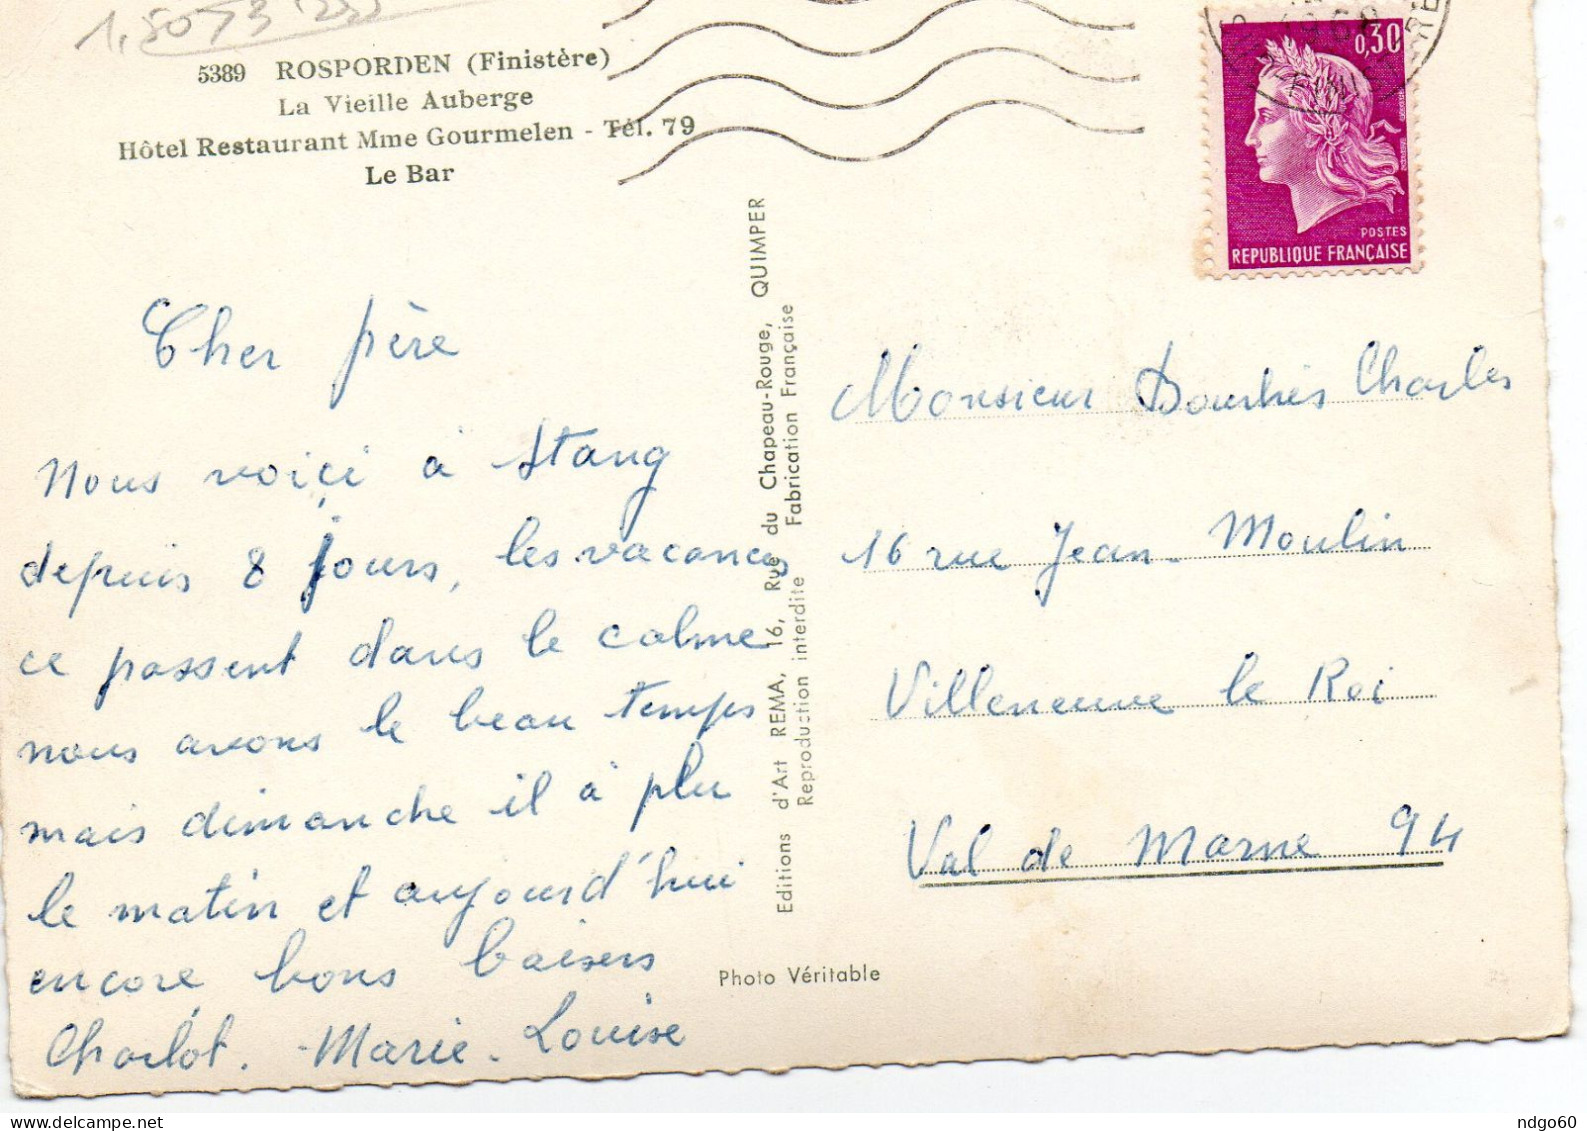 5389 ROSPORDEN (Finistère)
La Vieille Auberge
Hôtel Restaurant Mme Gourmelen - Tél. 79
Le Bar
0,30
POSTES
REPUBLIQUE FRANÇAISE
Cher père
Nous voiçi à Stang
depuis 8 jours, les vacances
ce passent dans le calme
nous avons le beau temps
mais dimanche il à plu
le matin et aujourd'hui
encore, bons baisers
Charlot. Marie-Louise
Editions d'Art REMA, 16, Rue du Chapeau-Rouge, QUIMPER
Reproduction interdite Fabrication Française
Photo Véritable
Monsieur Bourhis Charles
16 rue Jean-Moulin
Villeneuve le Roi
Val de Marne 94
ndgo60